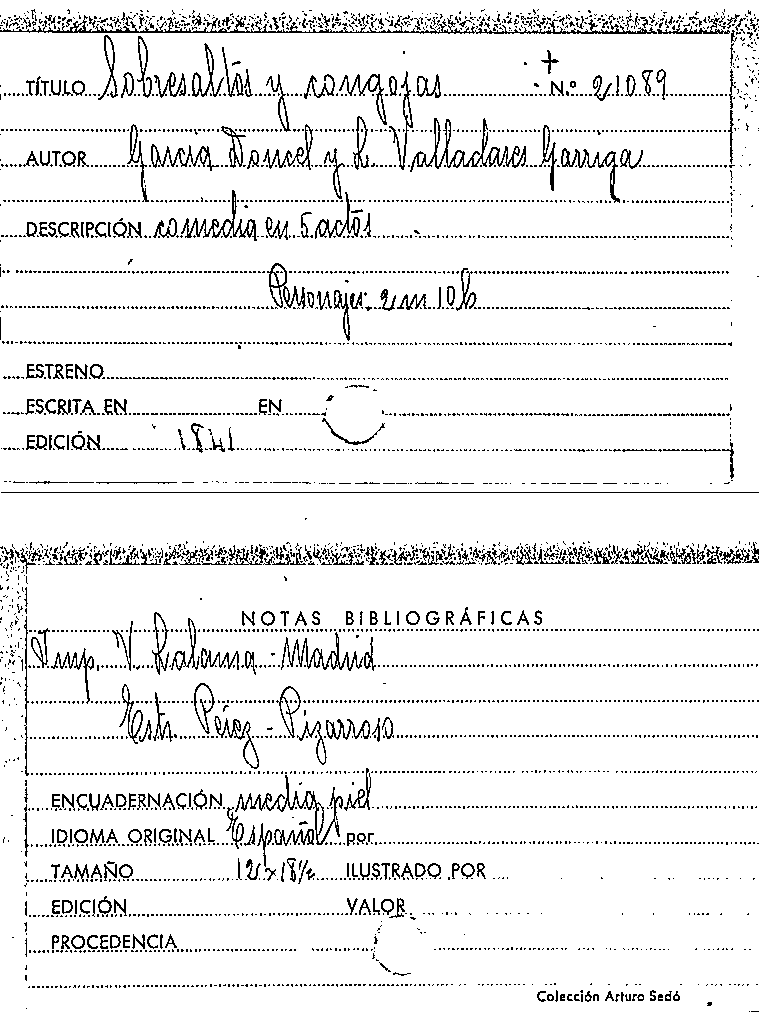 TÍTULO Sobresaltos y congojas N.º 21089
AUTOR Garcia Doncel y L. Valladares Garriga
DESCRIPCIÓN comedia en 5 actos
Personajes: 2 m 10 h
ESTRENO
ESCRITA EN EN
EDICIÓN 1841
NOTAS BIBLIOGRÁFICAS
Imp. V. Lalama - Madrid
Estr. Pérez - Pizarroso
ENCUADERNACIÓN media piel
IDIOMA ORIGINAL Español por
TAMAÑO 12 x 18½ ILUSTRADO POR
EDICIÓN VALOR
PROCEDENCIA
Colección Arturo Sedó